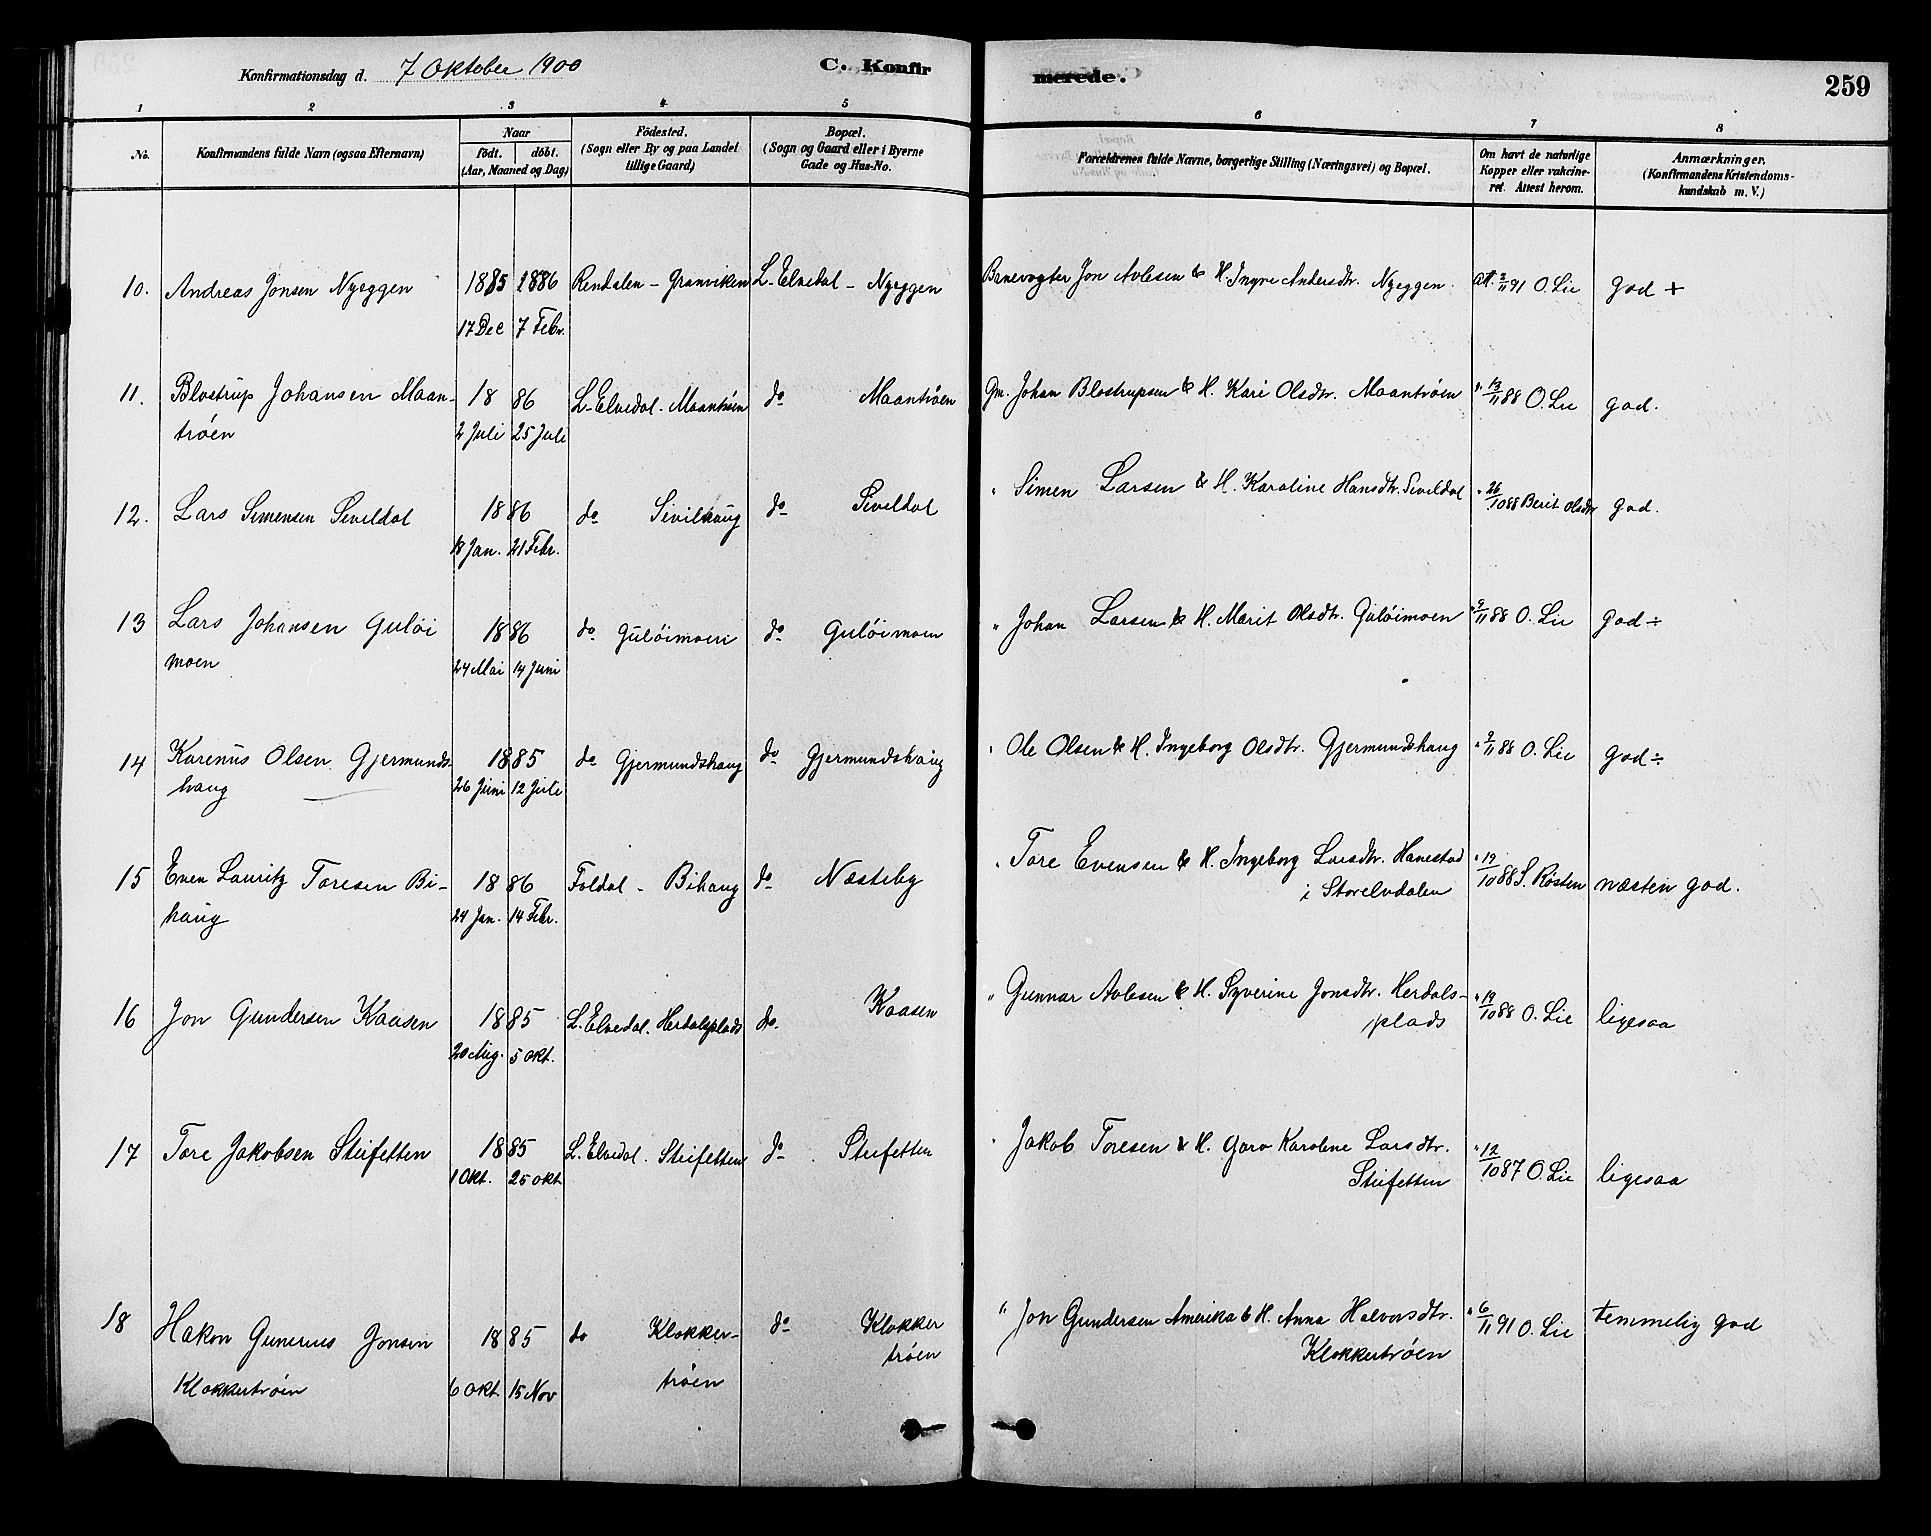 Konfirmationsdag d. 7 Oktober 1900 C. Konfir merede. 259
1 2 3 4 5 6 7 8
No. Konfirmandens fulde Navn (ogsaa Efternavn) Naar födt. döbt. (Aar, Maaned og Dag) Födested. (Sogn eller By og paa Landet tillige Gaard) Bopæl. (Sogn og Gaard eller i Byerne Gade og Hus-No. Forældrenes fulde Navne, borgerlige Stilling (Næringsvei) og Bopæl. Om havt de naturlige Kopper eller vakcineret. Attest herom. Anmærkninger. (Konfirmandens Kristendomskundskab m. V.)
10. Andreas Jonsen Nyeggen 1885 1886 Rendalen - Granviken L. Elvedal - Nyeggen Banevogter Jon Avlesen & H. Ingve Andersdtr. Nyeggen. Att. 2/11 91 O. Lie god +
17 Dec 7 Febr.
11. Blostrup Johansen Maan- 18 86 L. Elvedal. Maantröen do Maantröen Gm. Johan Blostrupsen & H. Kari Olsdtr. Maantröen " 13/11 88 O. Lie god.
tröen 2 Juli 25 Juli
12. Lars Simensen Siveldal 18 86 do Sivilhaug do Siveldal " Simen Larsen & H. Karoline Hansdtr. Siveldal " 26/10 88 Berit Olsdtr god.
18 Jan. 21 Febr.
13 Lars Johansen Gulöi 18 86 do Gulöimoen do Gulöimoen " Johan Larsen & H. Marit Olsdtr. Gulöimoen " 9/11 88 O. Lie god ÷
moen 24 Mai 14 Juni
14 Karenus Olsen Gjermunds 18 85 do Gjermundshaug do Gjermundshaug " Ole Olsen & H. Ingeborg Olsdtr. Gjermundshaug " 9/11 88 O. Lie god ÷
haug 26 Juni 12 Juli
15 Even Lauritz Toresen Bi- 18 86 Foldal - Bihaug do Næsteby " Tore Evensen & H. Ingeborg Larsdtr. Hanestad " 19/10 88 S. Rösten næsten god.
haug 24 Jan. 14 Febr. i Storelvdalen
16 Jon Gundersen Kaasen 18 85 L. Elvedal. Herdalsplads do. Kaasen " Gunnar Avlesen & H. Syverine Jonsdtr. Herdals- " 19/10 88 O. Lie ligesaa
20 Aug. 5 Okt. plads
17 Tore Jakobsen Steifetten 18 85 L. Elvedal. Steifetten do Steifetten " Jakob Toresen & H. Goro Karoline Larsdtr. " 12/10 87 O. Lie ligesaa
1 Okt. 25 Okt Steifetten
18 Hakon Gunerius Jonsen 18 85 do Klokker- do Klokker " Jon Gundersen Amerika & H. Anna Halvorsdtr. " 6/11 91 O. Lie temmelig god
Klokkertröen 6 Okt. 15 Nov tröen tröen Klokkertröen